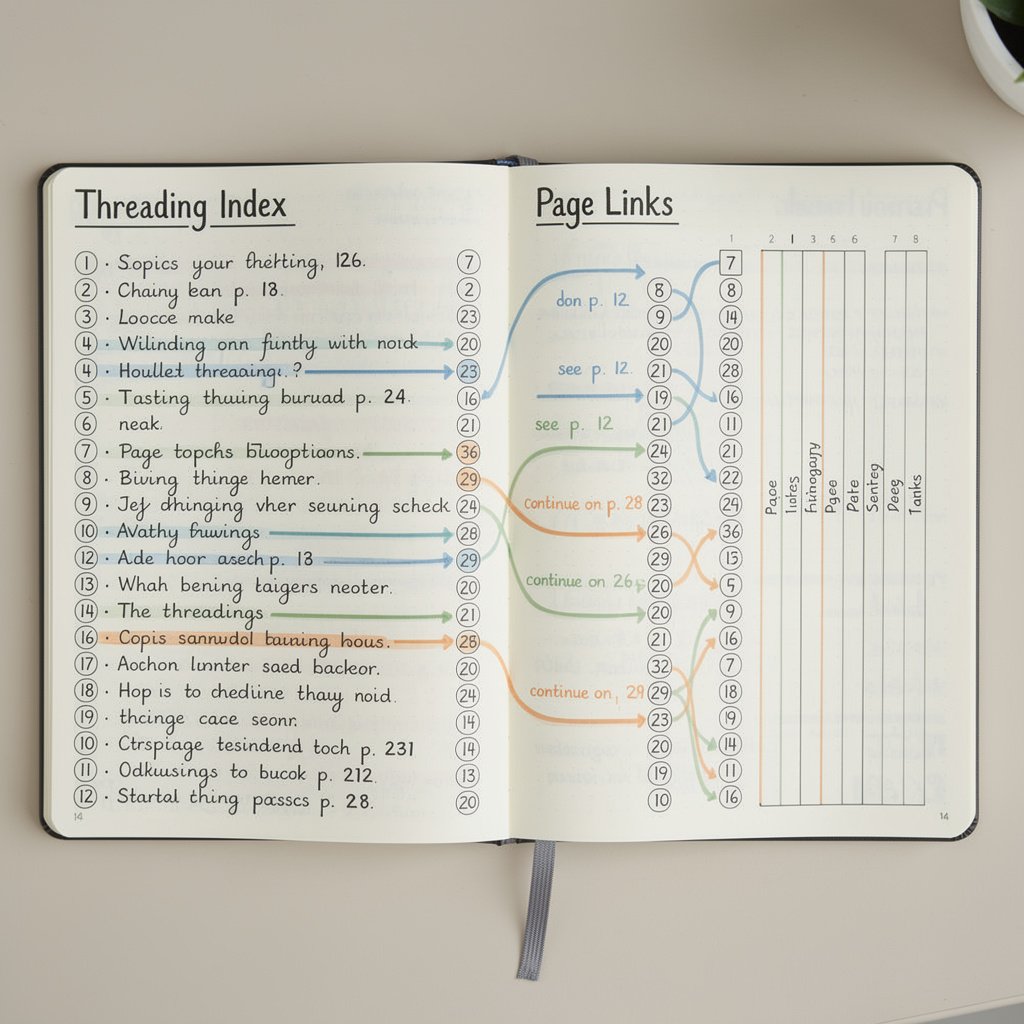 Threading Index
1 · Sopics your thetting, 126. 7
2 · Chainy ean p. 18. 2
3 · Loocce make 23
4 · Wilinding onn finthy with nock 20
4 · Houllet threading. ? 23
5 · Tasting thuing buruad p. 24. 16
6 neak. 21
7 · Page topchs 36
8 · Biving thinge hemer. 29
9 · Jef dhinging vher seuning scheck 24
10 · Avathy fuwings 28
12 · Ade hoor asech p. 13 29
13 · Whah bening taigers neoter. 20
14 · The threadings 21
16 · Copis sannudol tauning hous. 28
17 · Aochon lunnter saed backeor. 20
18 · Hop is to chediine thay noid. 24
19 · thcinge cace seonr. 14
10 · Ctrspiage tesindend toch p. 231 14
11 · Odkuusings to bucok p. 212. 13
12 · Startal thing pasccs p. 28. 20
14
Page Links
1 2 1 3 5 6 7 8
7
8 8
don p. 12
9 14
20 20
see p. 12. 21 28
19 16
see p. 12 21 11
24 21
32 22
continue on p. 28 23 24
26 36
29 13
continue on 26 20 5
20 9
21 16
32 7
continue on, 29 29 18
23 19
20 14
19 11
10 16
Paoe
Pagee
Pate
Senteg
Deeg
Tanks
14